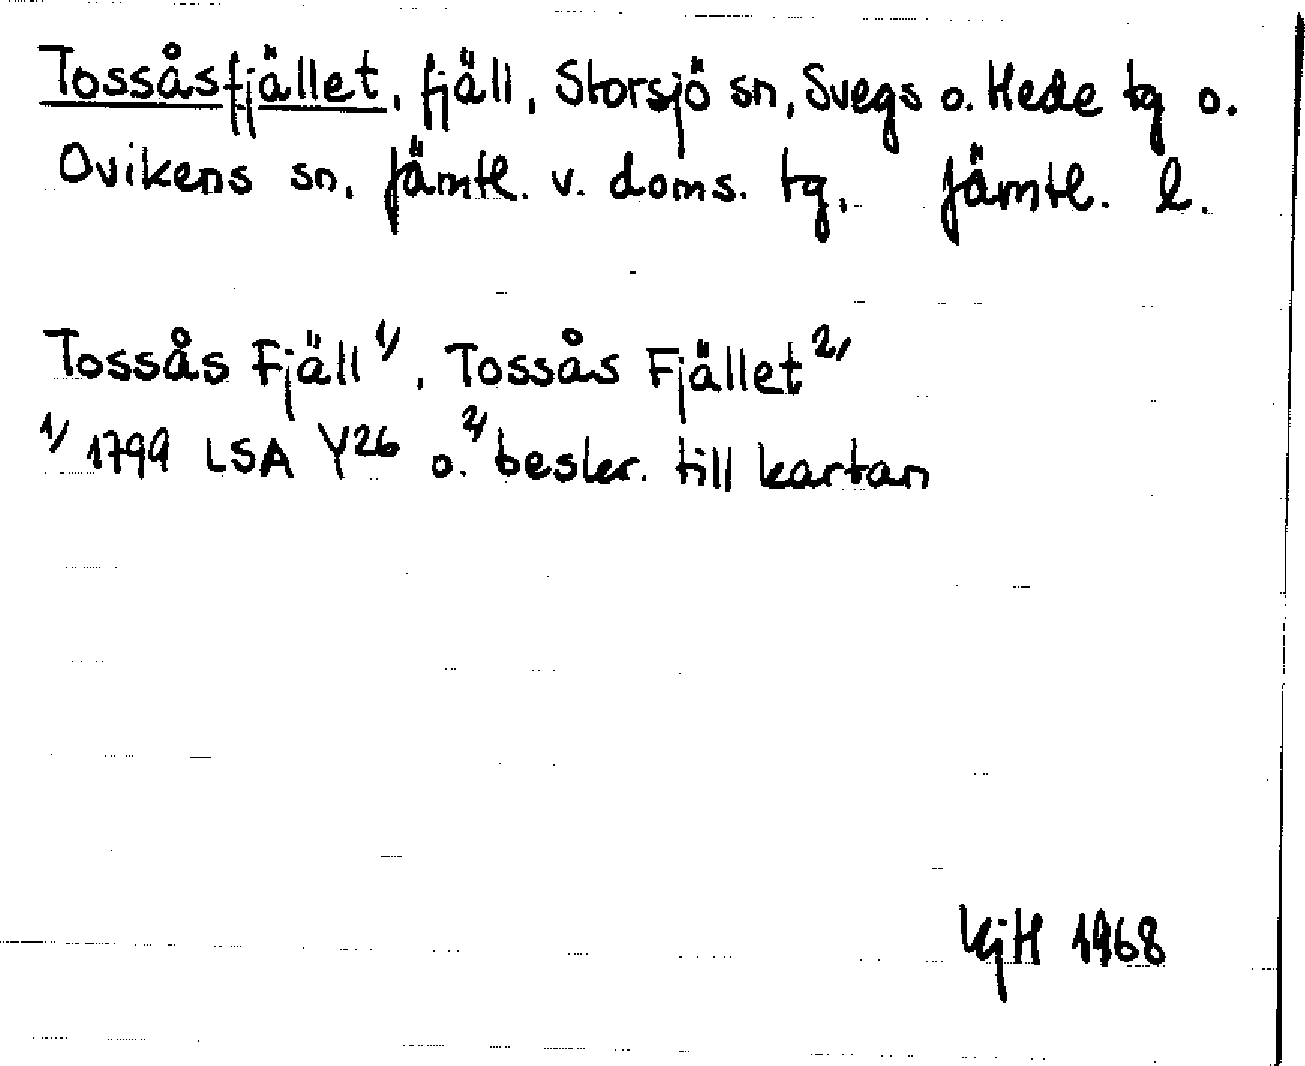 Tossåsfjället, fjäll, Storsjö sn, Svegs o. Hede tg o.
Ovikens sn. Jämtl. v. doms. tg. Jämtl. l.
Tossås Fjäll 1/, Tossås Fjället 2/
1/ 1799 LSA Y26 o. 2/ beskr. till kartan
KjH 1968